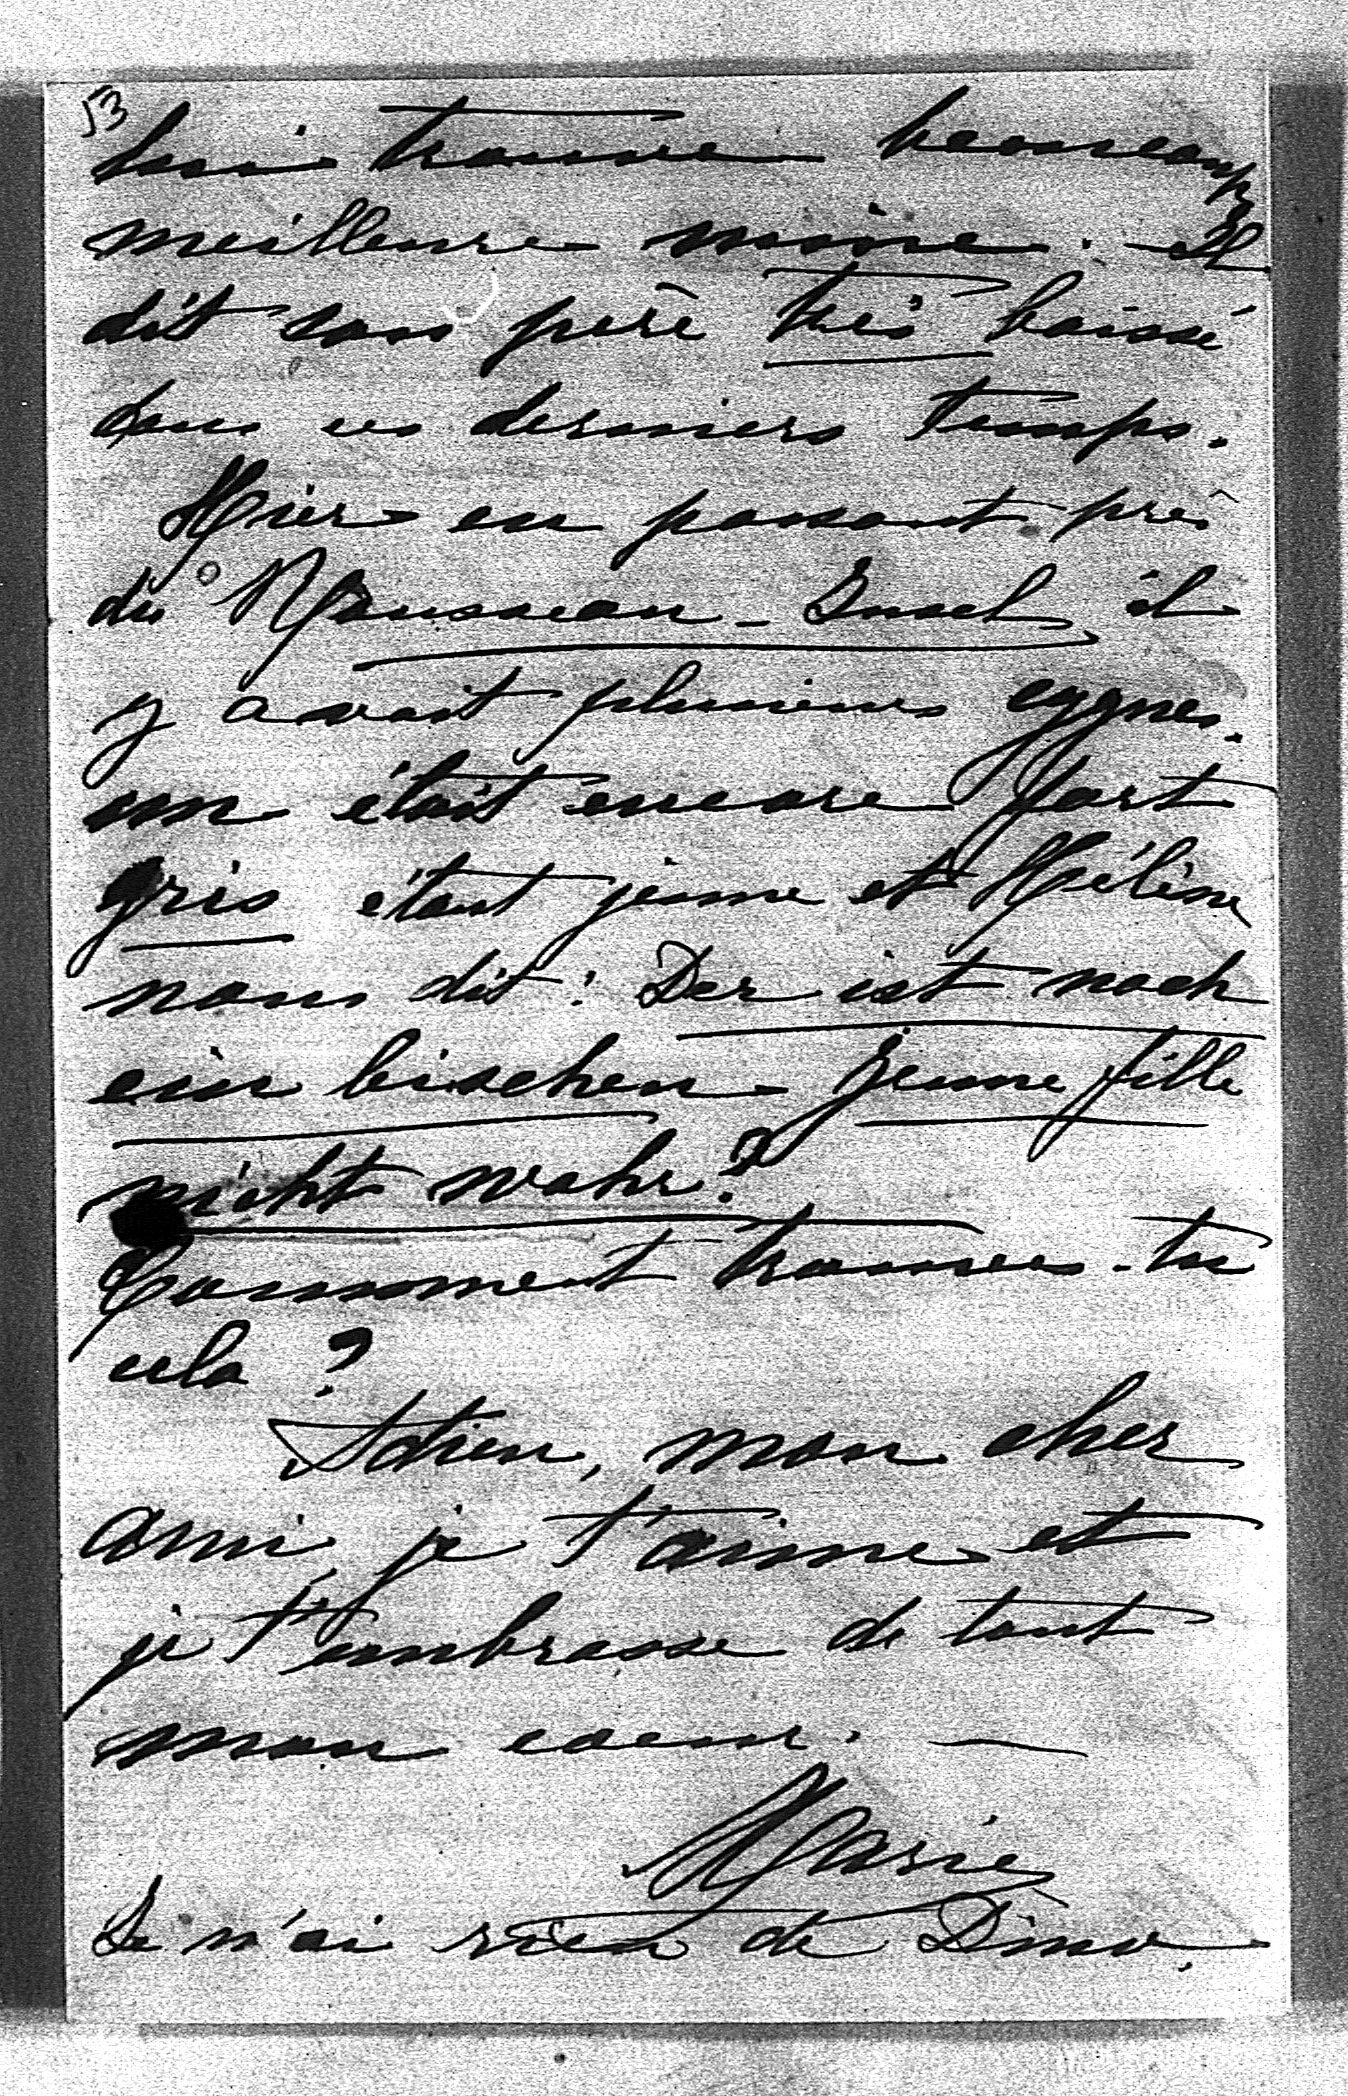 53
lui trouve beaucoup
meilleure mine. Il
dit son père très baissé
dans ces derniers temps.
Hier en passant près
du Rousseau-Insel, il
y avait plusieurs cygnes.
un était encore fort
gris étant jeune et Hélène
nous dit: Der ist noch
ein bischen jeune fille
nicht wahr?
Comment trouves-tu
cela?
Adieu, mon cher
ami, je t'aime et
je t'embrasse de tout
mon coeur. —
Marie
Je n'ai rien de Dino.